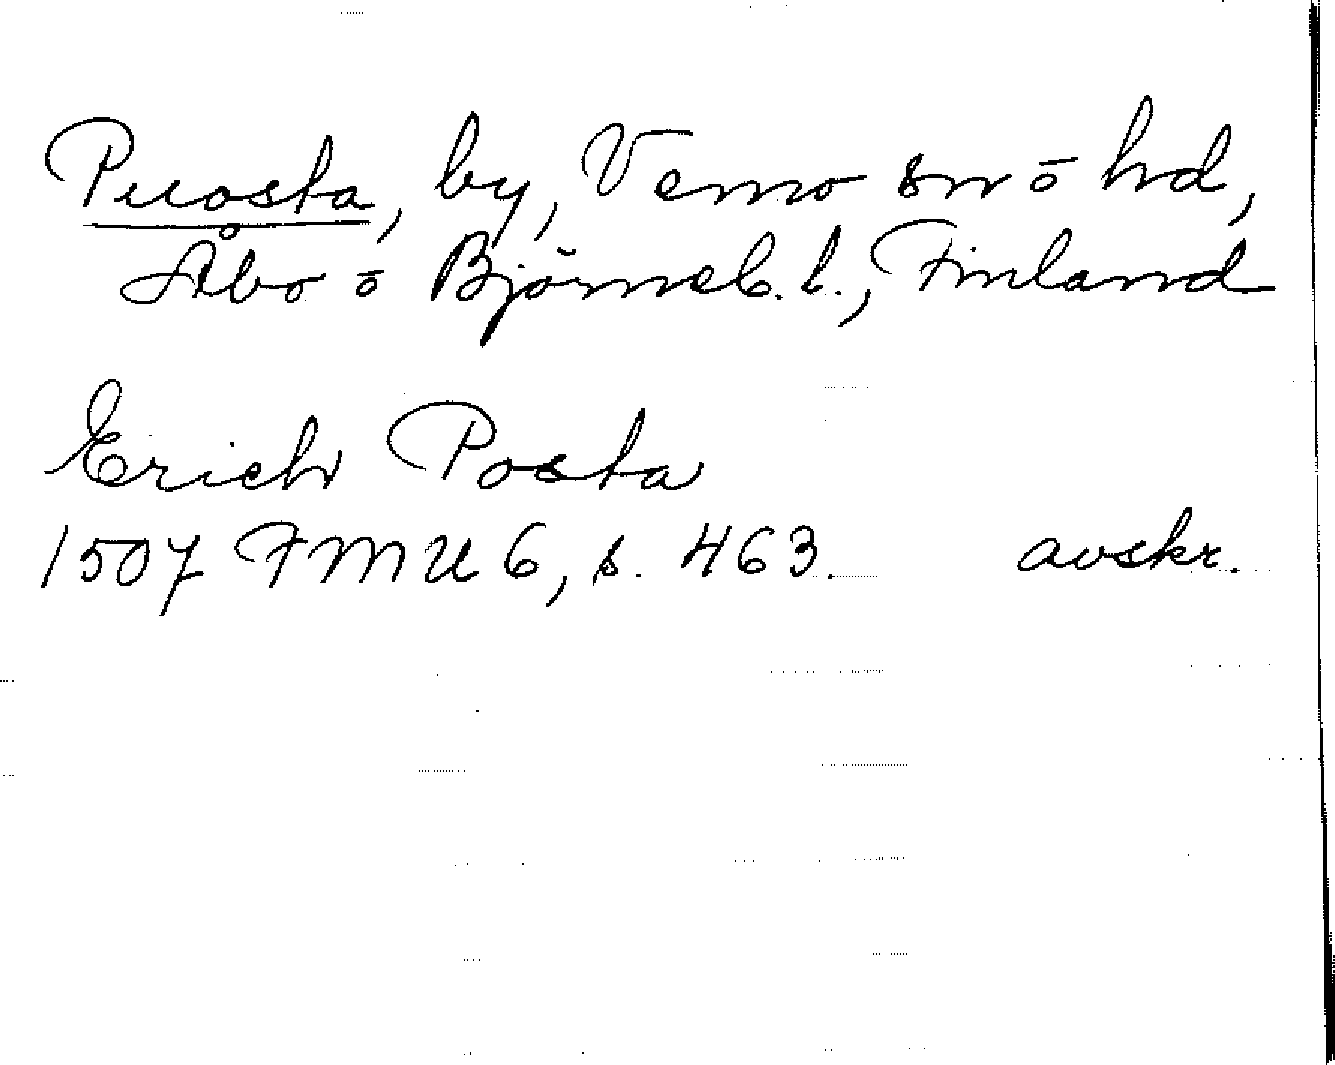 Puosta, by, Vemo sn o hd,
Åbo o Björneb. l., Finland
Erich Posta
1507 FMU 6, s. 463. avskr.